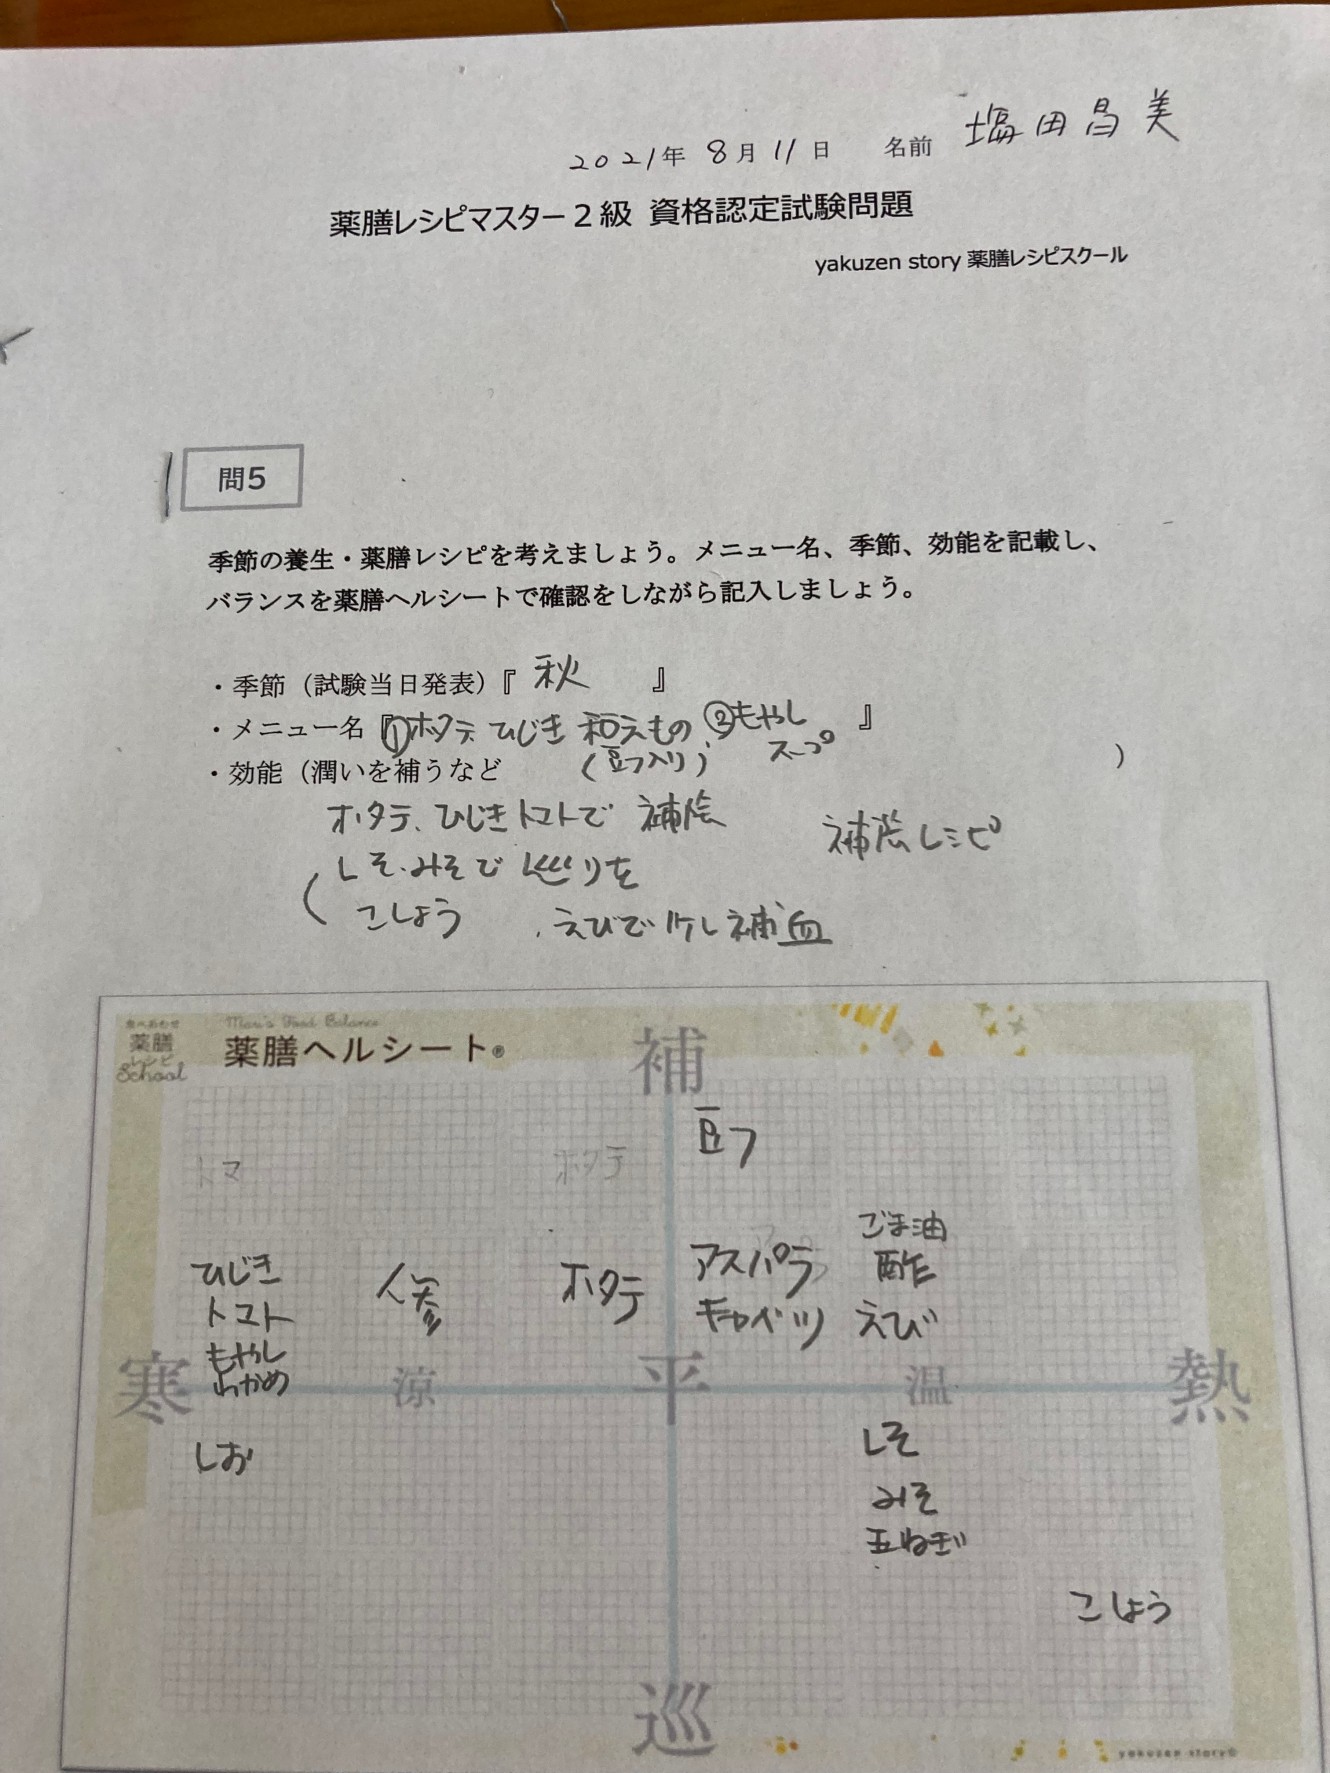 2021年 8月 11日 名前 塩田昌美
薬膳レシピマスター2級 資格認定試験問題
yakuzen story 薬膳レシピスクール
問5
季節の養生・薬膳レシピを考えましょう。メニュー名、季節、効能を記載し、
バランスを薬膳ヘルシートで確認をしながら記入しましょう。
・季節（試験当日発表）『 秋 』
・メニュー名『①ホタテ ひじき 和えもの ②もやし 』
(豆フ入り) スープ
・効能（潤いを補うなど ）
ホタテ、ひじきトマトで 補陰
補陰レシピ
しそ、みそで 巡りを
こしょう
えびで 少し補血
食べあわせ
薬膳
レシピ
School
Mari's Food Balance
薬膳ヘルシート®
補
豆フ
トマ
ホタテ
ごま油
ひじき 人参 ホタテ アスパラ 酢
トマト キャベツ えび
もやし
わかめ
寒 涼 平 温 熱
しお しそ
みそ
玉ねぎ
こしょう
巡
yakuzen story©